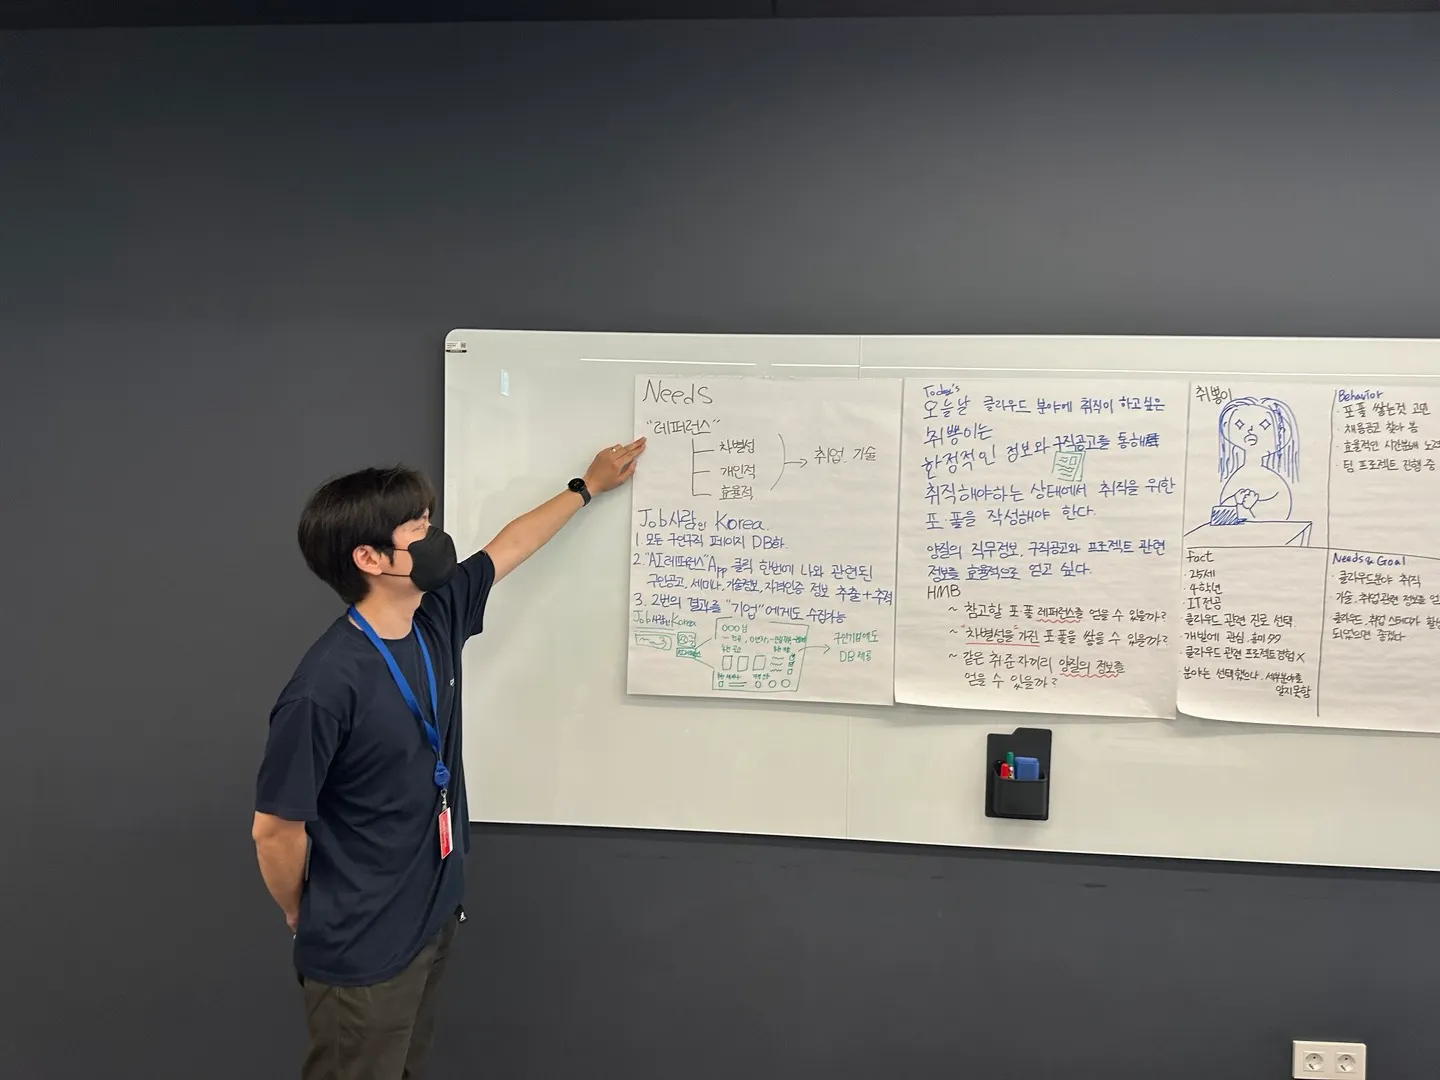 Needs
"레퍼런스"
차별성
개인적
효율적
취업. 기술
Job사람인 Korea.
1. 모든 구인구직 페이지 DB화.
2. "AI레퍼런스"App 클릭 한번에 나와 관련된
구인공고, 세미나, 기술정보, 자격인증 정보 추출+추적
3. 2번의 결과를 "기업"에게도 수집가능
Job사람인Korea
OOO님
구인기업에도
DB제공
Today's
오늘날 클라우드 분야에 취직이 하고싶은
취뽕이는
한정적인 정보와 구직공고를 통해
취직해야하는 상태에서 취직을 위한
포.폴을 작성해야 한다.
양질의 직무정보, 구직공고와 프로젝트 관련
정보를 효율적으로 얻고 싶다.
HMB
~ 참고할 포폴 레퍼런스를 얻을 수 있을까?
~ "차별성을"가진 포폴을 쌓을 수 있을까?
~ 같은 취준자끼리 양질의 정보를
얻을 수 있을까?
취뽕이
Behavior
· 포폴 쌓는것 고민
· 채용공고 찾아 봄
· 효율적인 시간분배 노력
· 팀 프로젝트 진행 중
Fact
· 25세
· 4학년
· IT전공
클라우드 관련 진로 선택.
개발에 관심.
· 클라우드 관련 프로젝트경험 X
분야는 선택했으나. 세부분야를
알지못함
Needs & Goal
· 클라우드분야 취직
기술. 취업관련 정보를
클라우드. 취업 스터디가
되었으면 좋겠다